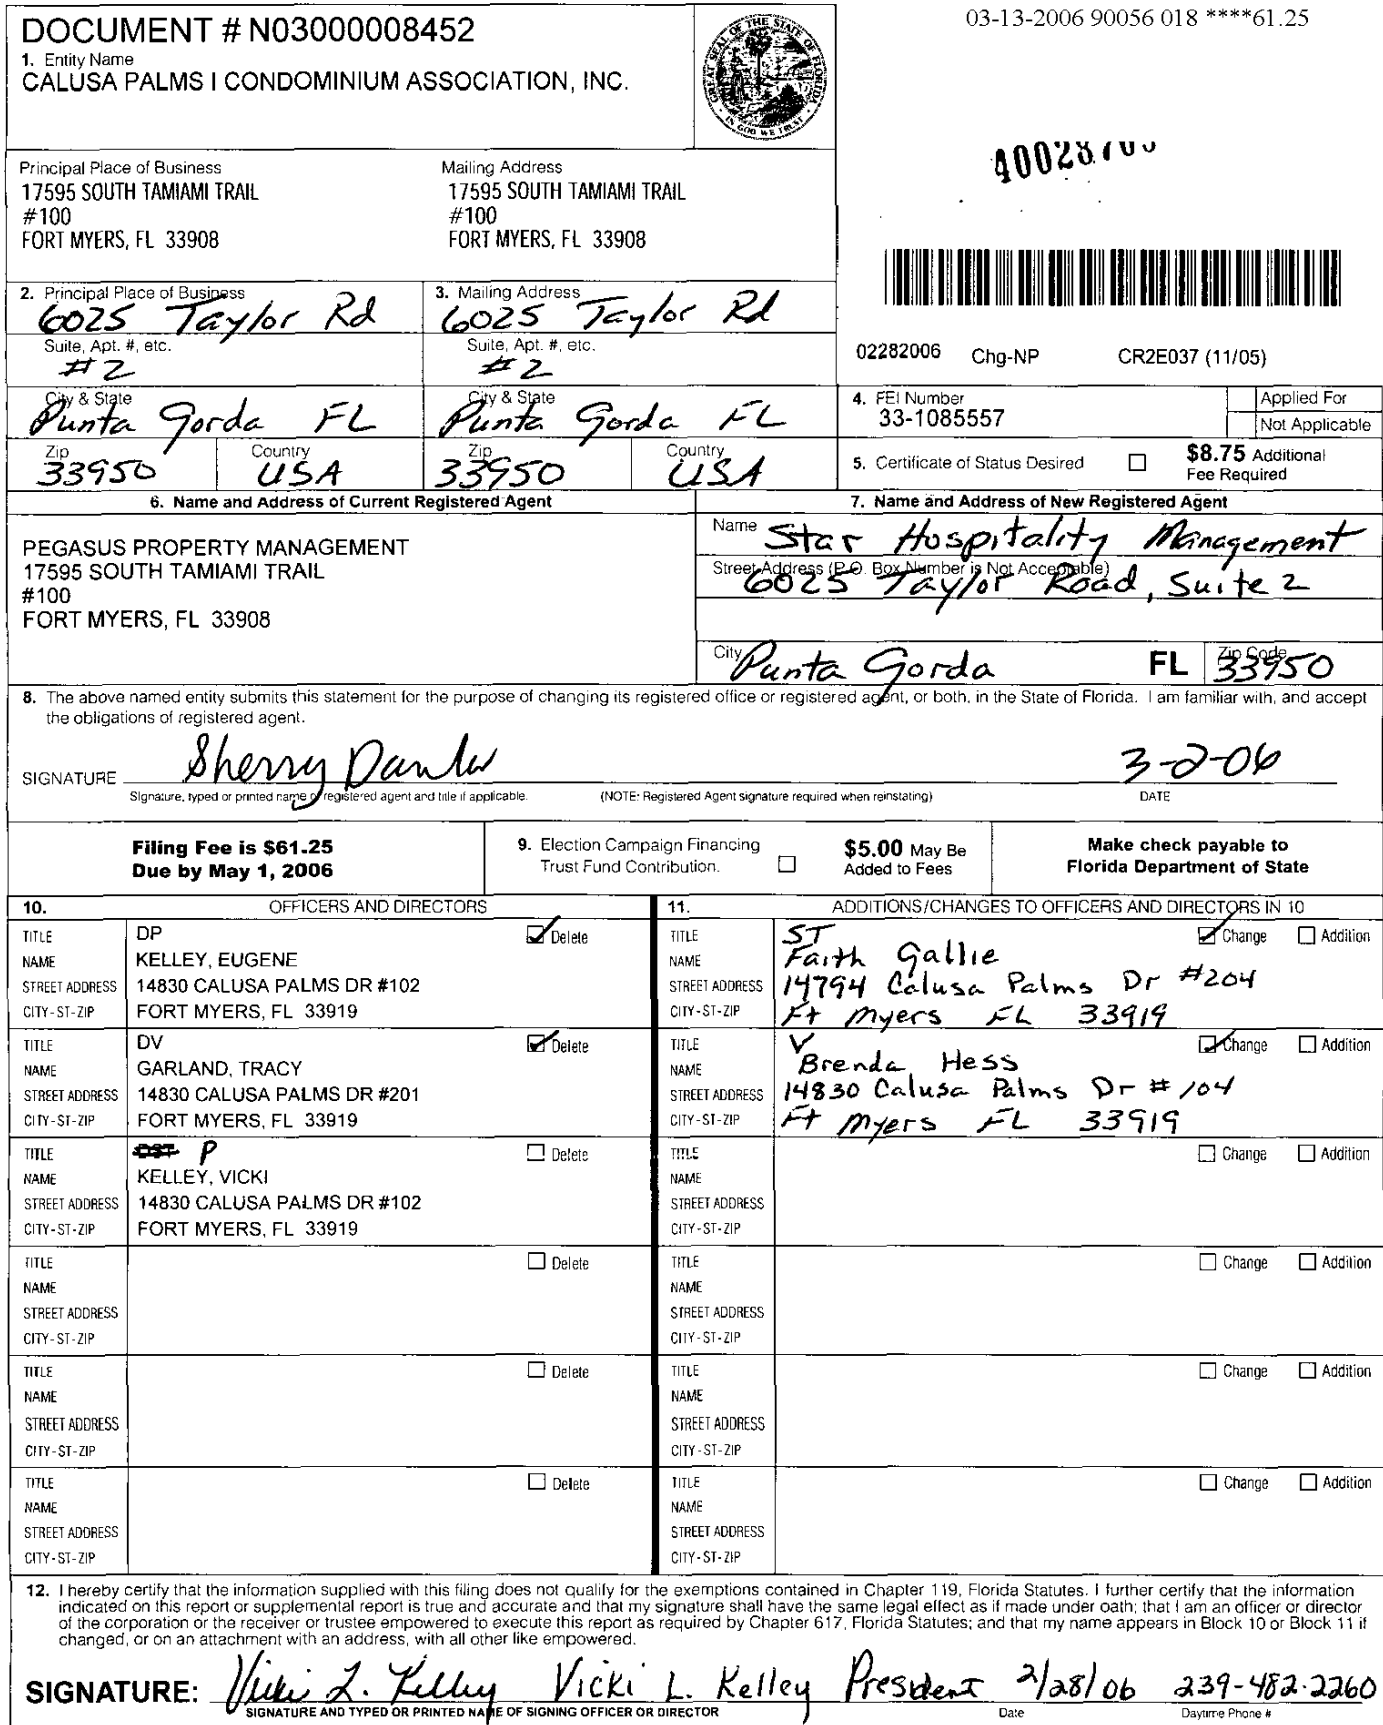 03-13-2006 90056 018 ****61.25
DOCUMENT # N03000008452
1. Entity Name
CALUSA PALMS I CONDOMINIUM ASSOCIATION, INC.
GREAT SEAL OF THE STATE OF FLORIDA
IN GOD WE TRUST
Principal Place of Business
17595 SOUTH TAMIAMI TRAIL
#100
FORT MYERS, FL 33908
Mailing Address
17595 SOUTH TAMIAMI TRAIL
#100
FORT MYERS, FL 33908
2. Principal Place of Business
6025 Taylor Rd
Suite, Apt. #, etc.
#2
City & State
Punta Gorda FL
Zip
33950
Country
USA
3. Mailing Address
6025 Taylor Rd
Suite, Apt. #, etc.
#2
City & State
Punta Gorda FL
Zip
33950
Country
USA
02282006 Chg-NP CR2E037 (11/05)
4. FEI Number
33-1085557
Applied For
Not Applicable
5. Certificate of Status Desired
$8.75 Additional
Fee Required
6. Name and Address of Current Registered Agent
PEGASUS PROPERTY MANAGEMENT
17595 SOUTH TAMIAMI TRAIL
#100
FORT MYERS, FL 33908
7. Name and Address of New Registered Agent
Name Star Hospitality Management
Street Address (P.O. Box Number is Not Acceptable)
6025 Taylor Road, Suite 2
City Punta Gorda FL Zip Code 33950
8. The above named entity submits this statement for the purpose of changing its registered office or registered agent, or both, in the State of Florida. I am familiar with, and accept
the obligations of registered agent.
SIGNATURE Sherry 3-2-06
Signature, typed or printed name of registered agent and title if applicable. (NOTE: Registered Agent signature required when reinstating) DATE
Filing Fee is $61.25
Due by May 1, 2006
9. Election Campaign Financing
Trust Fund Contribution.
$5.00 May Be
Added to Fees
Make check payable to
Florida Department of State
10. OFFICERS AND DIRECTORS
TITLE DP Delete
NAME KELLEY, EUGENE
STREET ADDRESS 14830 CALUSA PALMS DR #102
CITY-ST-ZIP FORT MYERS, FL 33919
TITLE DV Delete
NAME GARLAND, TRACY
STREET ADDRESS 14830 CALUSA PALMS DR #201
CITY-ST-ZIP FORT MYERS, FL 33919
TITLE DST P Delete
NAME KELLEY, VICKI
STREET ADDRESS 14830 CALUSA PALMS DR #102
CITY-ST-ZIP FORT MYERS, FL 33919
TITLE Delete
NAME
STREET ADDRESS
CITY-ST-ZIP
TITLE Delete
NAME
STREET ADDRESS
CITY-ST-ZIP
TITLE Delete
NAME
STREET ADDRESS
CITY-ST-ZIP
11. ADDITIONS/CHANGES TO OFFICERS AND DIRECTORS IN 10
TITLE ST Change Addition
NAME Faith Gallie
STREET ADDRESS 14794 Calusa Palms Dr #204
CITY-ST-ZIP Ft Myers FL 33919
TITLE V Change Addition
NAME Brenda Hess
STREET ADDRESS 14830 Calusa Palms Dr #104
CITY-ST-ZIP Ft Myers FL 33919
TITLE Change Addition
NAME
STREET ADDRESS
CITY-ST-ZIP
TITLE Change Addition
NAME
STREET ADDRESS
CITY-ST-ZIP
TITLE Change Addition
NAME
STREET ADDRESS
CITY-ST-ZIP
TITLE Change Addition
NAME
STREET ADDRESS
CITY-ST-ZIP
12. I hereby certify that the information supplied with this filing does not qualify for the exemptions contained in Chapter 119, Florida Statutes. I further certify that the information
indicated on this report or supplemental report is true and accurate and that my signature shall have the same legal effect as if made under oath; that I am an officer or director
of the corporation or the receiver or trustee empowered to execute this report as required by Chapter 617, Florida Statutes; and that my name appears in Block 10 or Block 11 if
changed, or on an attachment with an address, with all other like empowered.
SIGNATURE: Vicki L. Kelley Vicki L. Kelley President 2/28/06 239-482-2260
SIGNATURE AND TYPED OR PRINTED NAME OF SIGNING OFFICER OR DIRECTOR Date Daytime Phone #